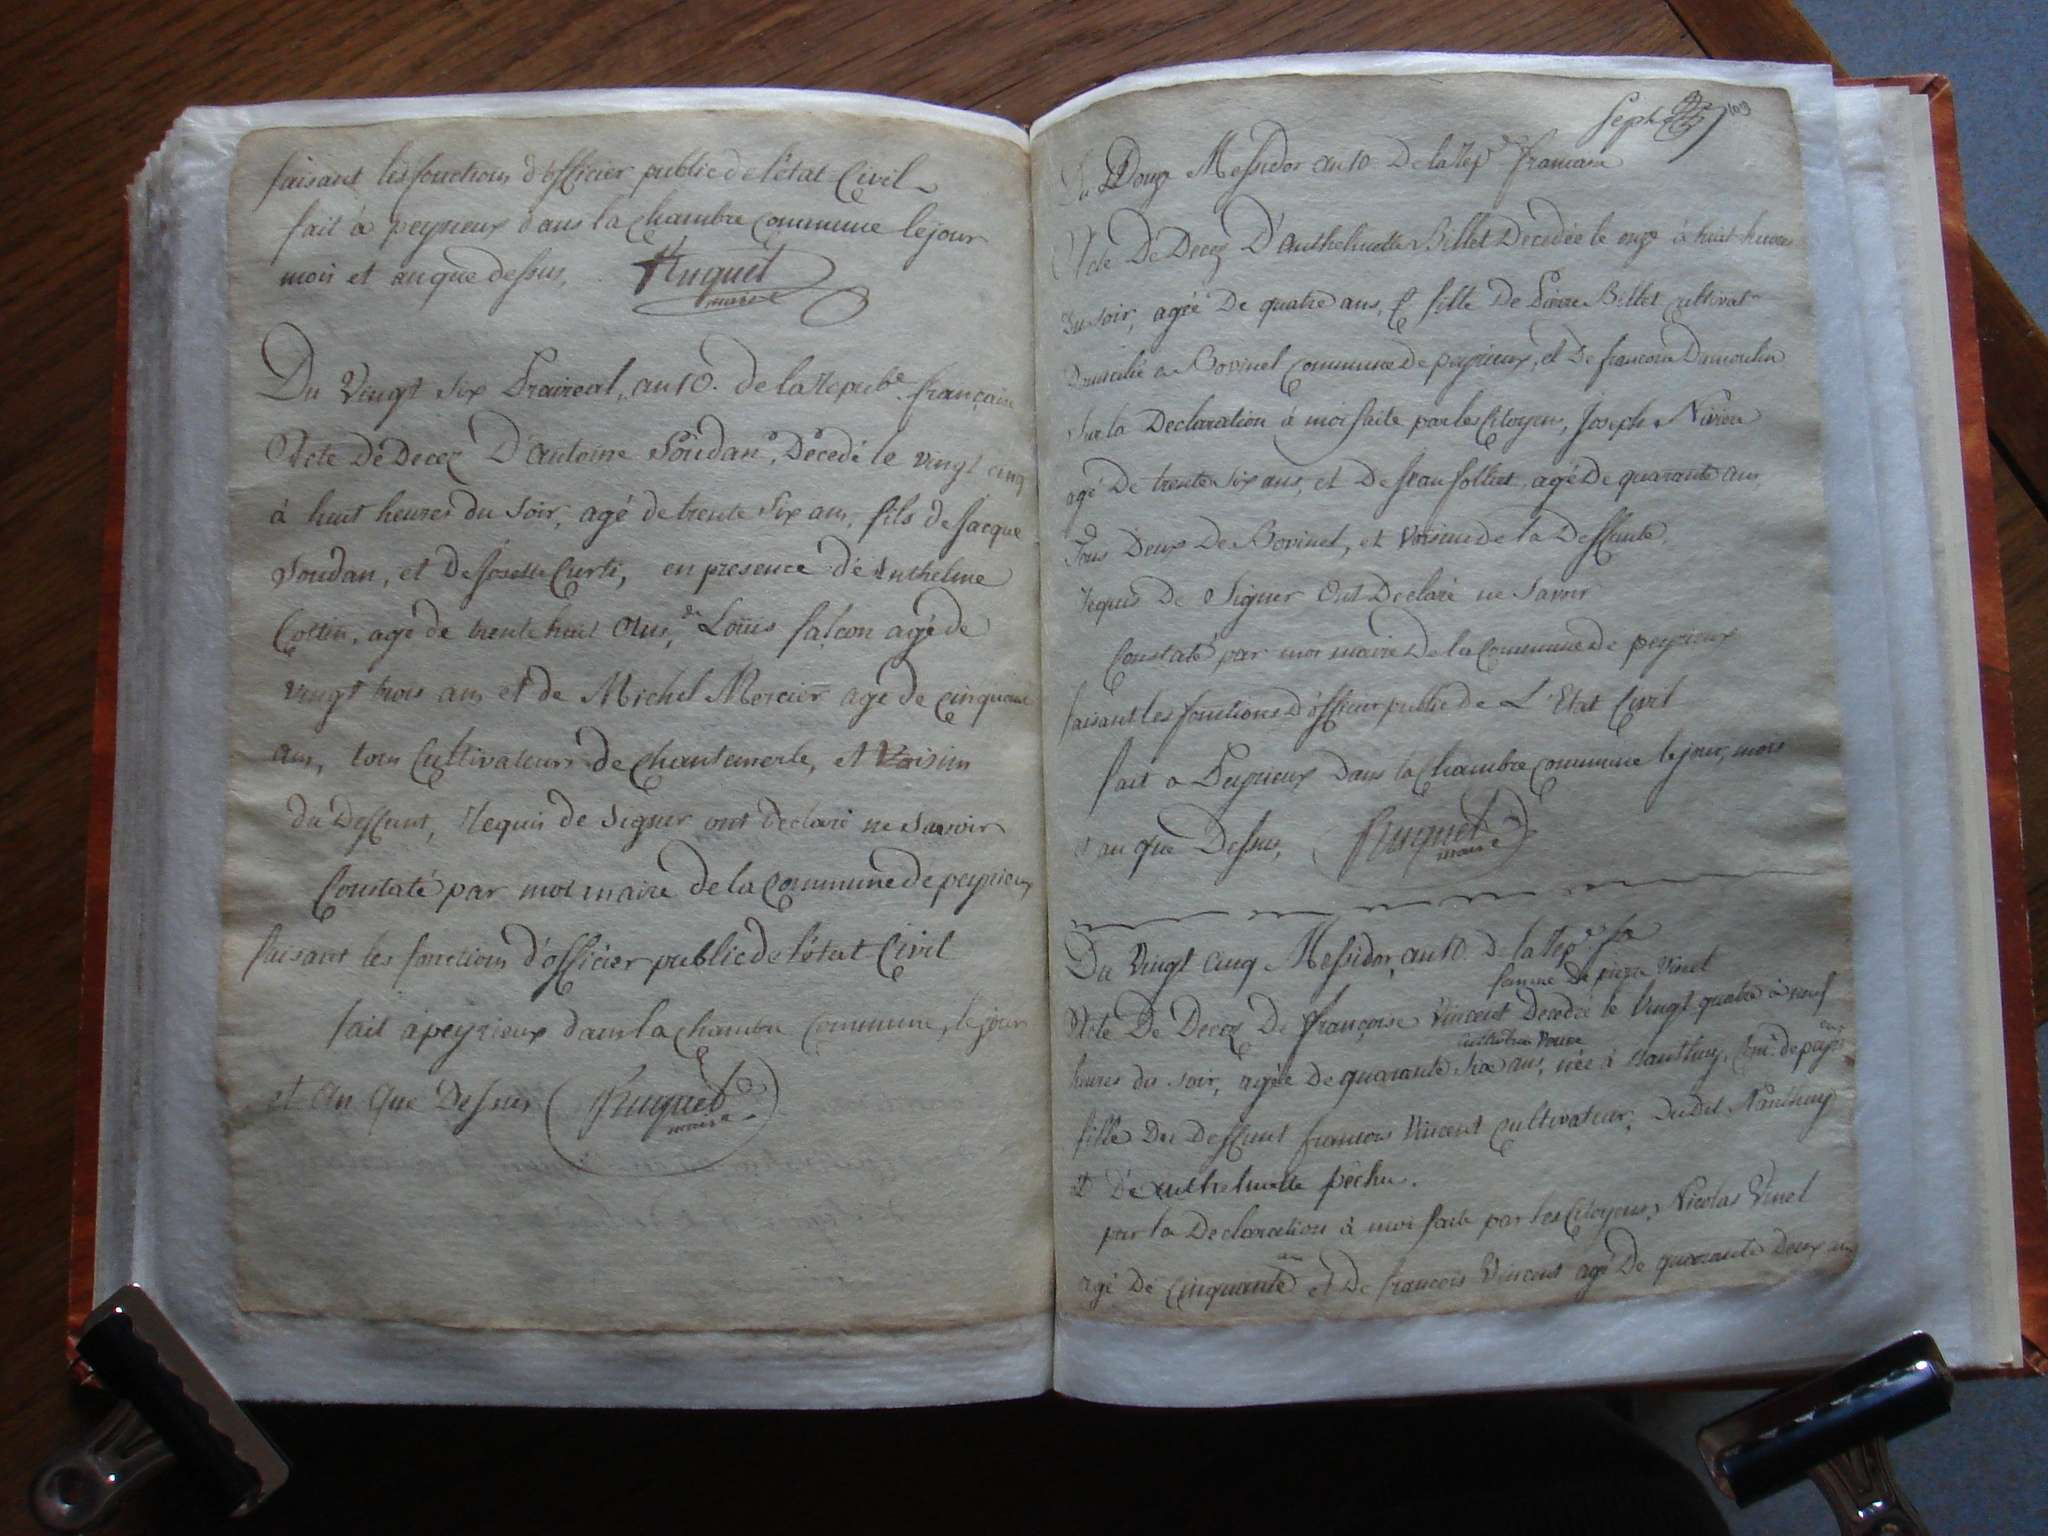 faisant les fonctions d'officier public de l'état Civil
fait à peyrieux dans la Chambre Commune le jour
mois et an que dessus, Huquet
maire
Du Vingt Six Praireal, an 10. de la Repub.e française
Acte De Decez D'antoine Soudan, Décedé le vingt cinq
à huit heures du Soir, agé de trente Six ans, fils de Jacque
Soudan, et De Josette Curti, en presence d'e Anthelme
Cottin, agé de trente huit Ans, de Louis falcon agé de
vingt trois ans et de Michel Morcier agé de Cinquante
ans, tous Cultivateurs de Chantemerle, et Voisin
du Deffunt, Requis de Signer ont Declaré ne Savoir
Constaté par moi maire De la Commune de peyrieux
faisant les fonctions d'officier public de l'état Civil
fait à peyrieux dans la Chambre Commune, le jour
et An Que Dessus Huquet
maire
Seph 109
Du Douze Messidor an 10 De la Rep.e francaise
Acte De Decez D'Anthelmette Billet Decedée le onze à huit heures
Du soir, agée De quatre ans, fille De Pierre Billet Cultivat.r
Domicilié a Bovinel Commune De peyrieux, et De francoise Dumoulin
Sur la Declaration à moi faite par les Citoyens, Joseph
agé De trente Six ans, et De Jean folliet agé De quarante ans,
Tous Deux De Bovinel, et Voisins de la Deffunte,
Requis De Signer Ont Declaré ne Savoir
Constaté par moi maire De la Commune De peyrieux
faisant les fonctions d'officier public De L'Etat Civil
fait a Peyrieux Dans la Chambre Commune le jour, mois
et an que Dessus, Huquet
maire
Du Vingt Cinq Messidor, an 10 De la Rep.e fr
femme De pierre Vinel
Acte De Decez De françoise Vincent Decedée le Vingt quatre à neuf
heures du soir, agée De quarante Six ans, née à Nanthuy, Com.e de peyri
eux
fille Du Deffunt francois Vincent Cultivateur, Du Dit Nanthuy
et D'e Anthelmette pochu.
par la Declaration à moi faite par les Citoyens, Nicolas Vinel
ans
agé De Cinquante et De francois Vincent agé De quarante Deux ans